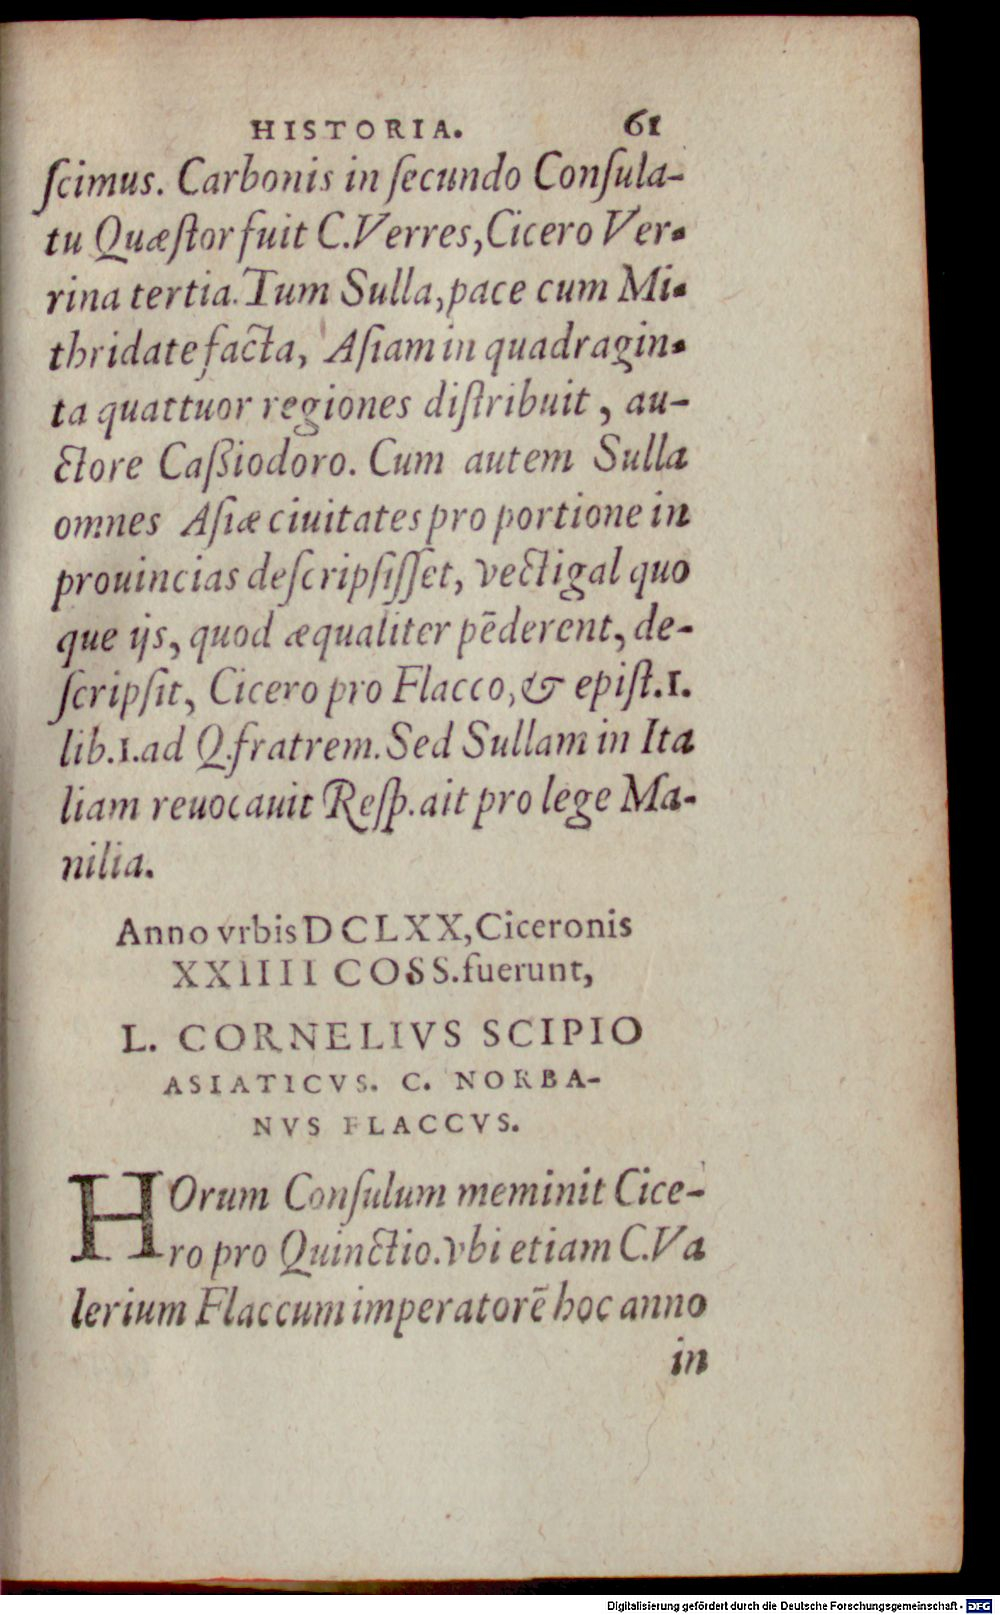 HISTORIA. 61
ſcimus. Carbonis in ſecundo Conſula-
tu Quæſtor fuit C.Verres,Cicero Ver-
rina tertia.Tum Sulla,pace cum Mi-
thridate facta, Aſiam in quadragin-
ta quattuor regiones diſtribuit, au-
ctore Caßiodoro. Cum autem Sulla
omnes Aſiæ ciuitates pro portione in
prouincias deſcripſiſſet, vectigal quo
que ijs, quod æqualiter pēderent, de-
ſcripſit, Cicero pro Flacco,& epiſt.1.
lib.1.ad Q.fratrem.Sed Sullam in Ita
liam reuocauit Reſp.ait pro lege Ma-
nilia.
Anno vrbis DCLXX,Ciceronis
XXIIII COSS.fuerunt,
L. CORNELIVS SCIPIO
ASIATICVS. C. NORBA-
NVS FLACCVS.
HOrum Conſulum meminit Cice-
ro pro Quinctio.vbi etiam C.Va
lerium Flaccum imperatorē hoc anno
in
Digitalisierung gefördert durch die Deutsche Forschungsgemeinschaft - DFG